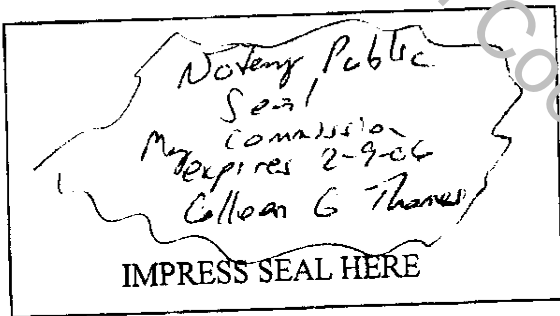 Notary Public
Seal
My Commission
expires 2-9-06
Colleen G Thames
IMPRESS SEAL HERE
Coo